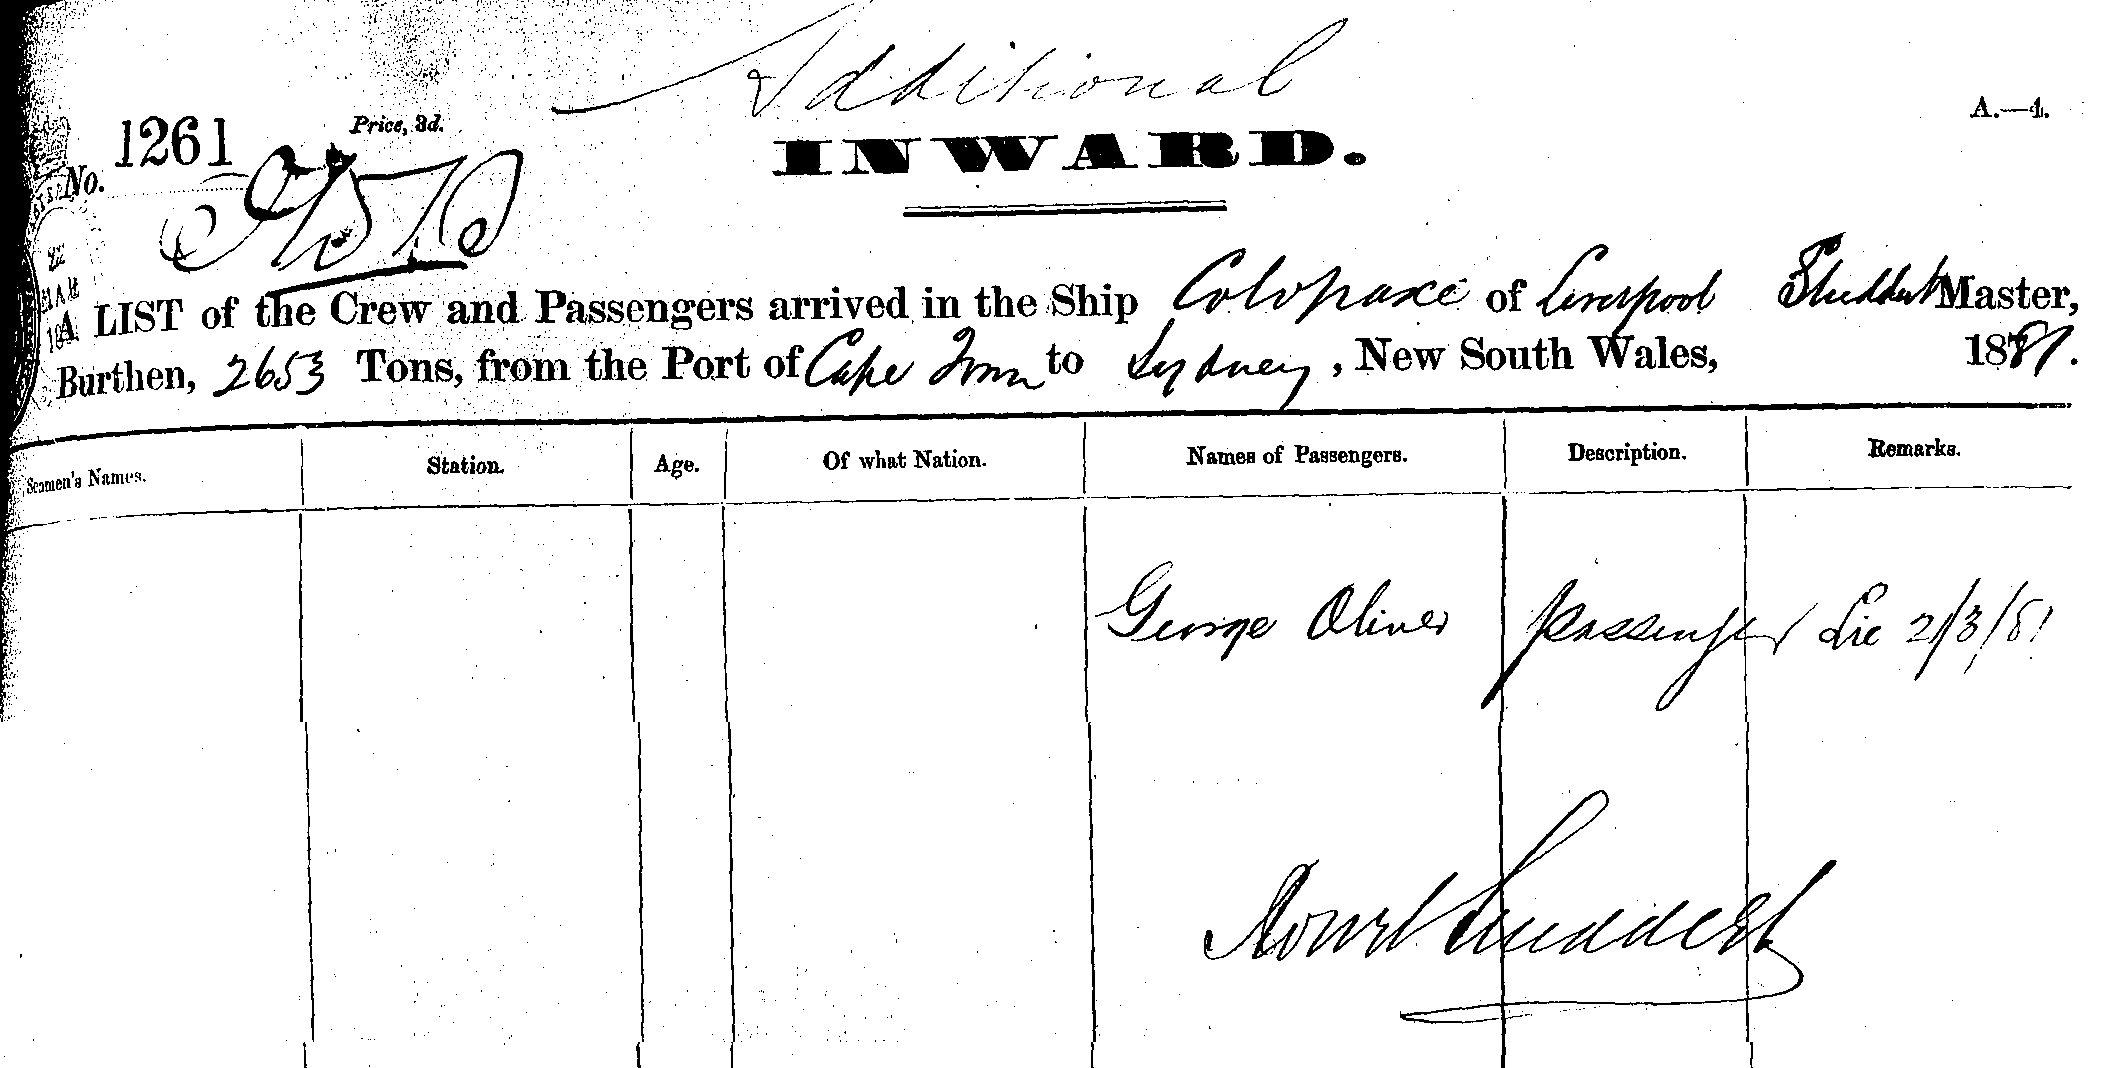 Additional
A.—4.
No. 1261
Price, 3d.
INWARD.
A LIST of the Crew and Passengers arrived in the Ship Cotopaxi of Liverpool Studdert Master,
Burthen, 2653 Tons, from the Port of Cape Town to Sydney, New South Wales, 1881.
Seamen's Names. Station. Age. Of what Nation. Names of Passengers. Description. Remarks.
George Oliver passenger Lic 2/3/81
Studdert